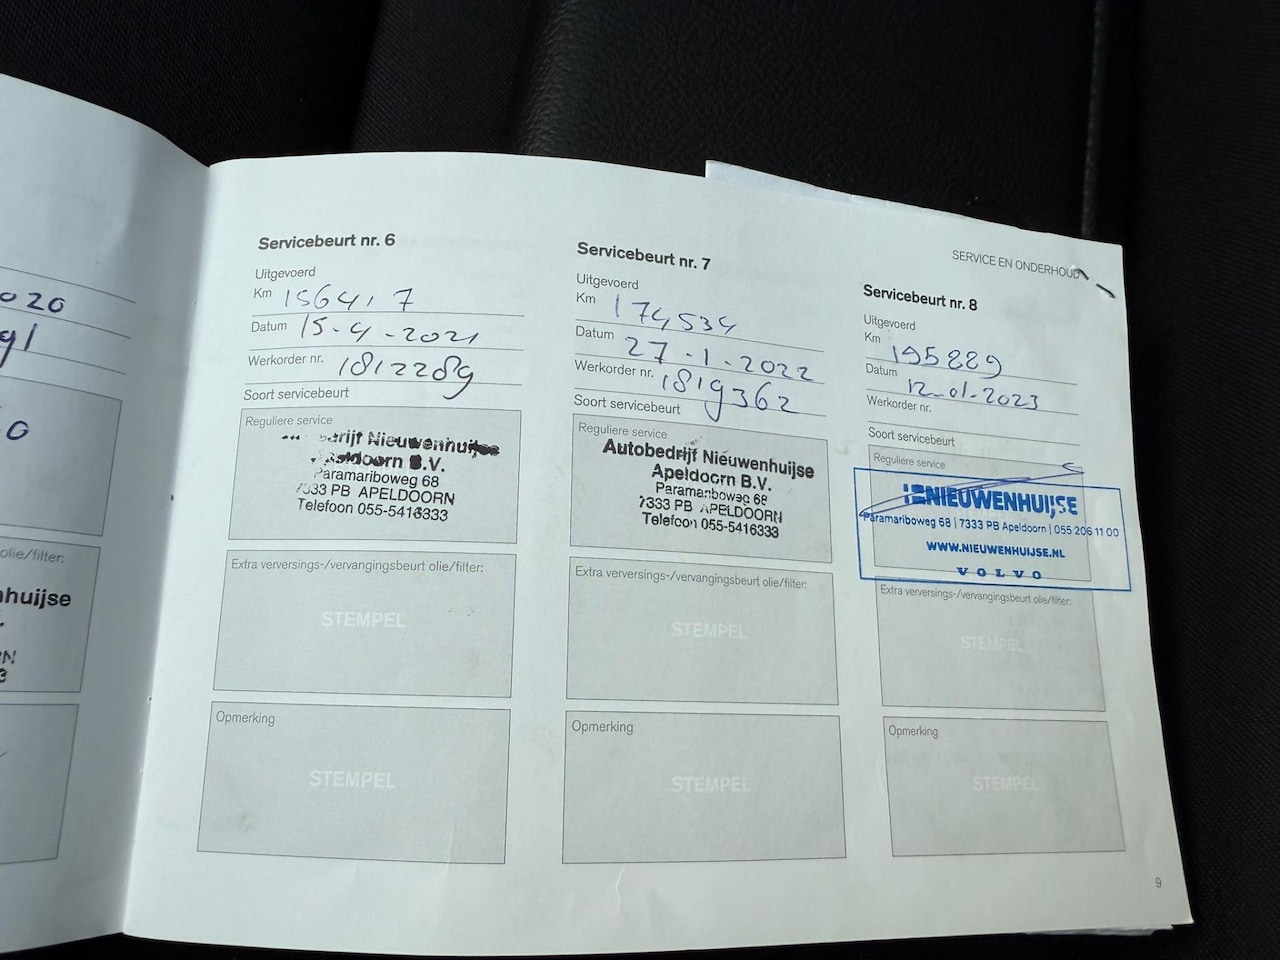 020
91
0
olie/filter:
nhuijse
SERVICE EN ONDERHOUD
Servicebeurt nr. 6
Uitgevoerd
Km 156417
Datum 15-4-2021
Werkorder nr. 1812289
Soort servicebeurt
Reguliere service
Nieuwenhuijse
B.V.
Paramariboweg 68
7333 PB APELDOORN
Telefoon 055-5416333
Extra verversings-/vervangingsbeurt olie/filter:
STEMPEL
Opmerking
STEMPEL
Servicebeurt nr. 7
Uitgevoerd
Km 174534
Datum 27-1-2022
Werkorder nr. 1819362
Soort servicebeurt
Reguliere service
Autobedrijf Nieuwenhuijse
Apeldoorn B.V.
Paramariboweg 68
7333 PB APELDOORN
Telefoon 055-5416333
Extra verversings-/vervangingsbeurt olie/filter:
STEMPEL
Opmerking
STEMPEL
Servicebeurt nr. 8
Uitgevoerd
Km 195889
Datum 12-01-2023
Werkorder nr.
Soort servicebeurt
Reguliere service
NIEUWENHUIJSE
Paramariboweg 68 | 7333 PB Apeldoorn | 055 206 11 00
WWW.NIEUWENHUIJSE.NL
VOLVO
Extra verversings-/vervangingsbeurt olie/filter:
STEMPEL
Opmerking
STEMPEL
9